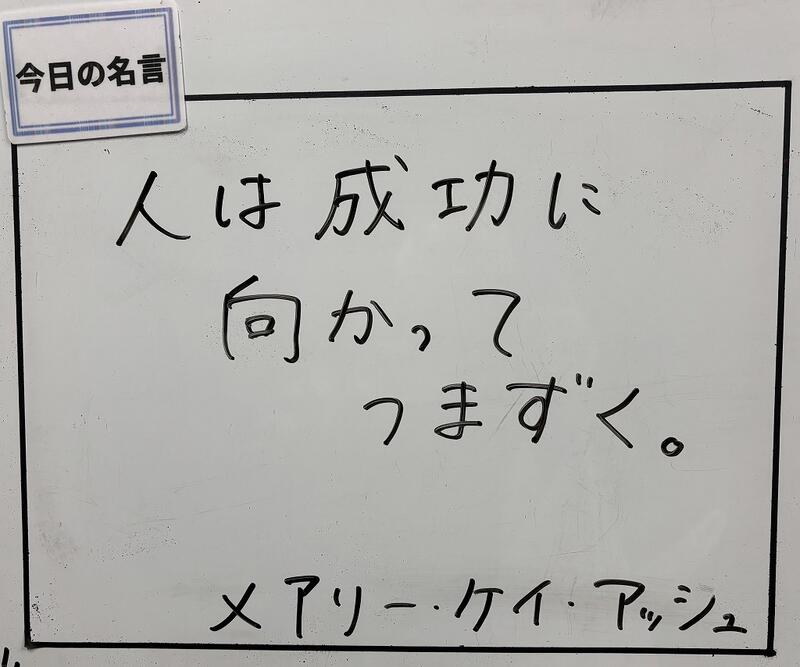 今日の名言
人は成功に
向かって
つまずく。
メアリー・ケイ・アッシュ